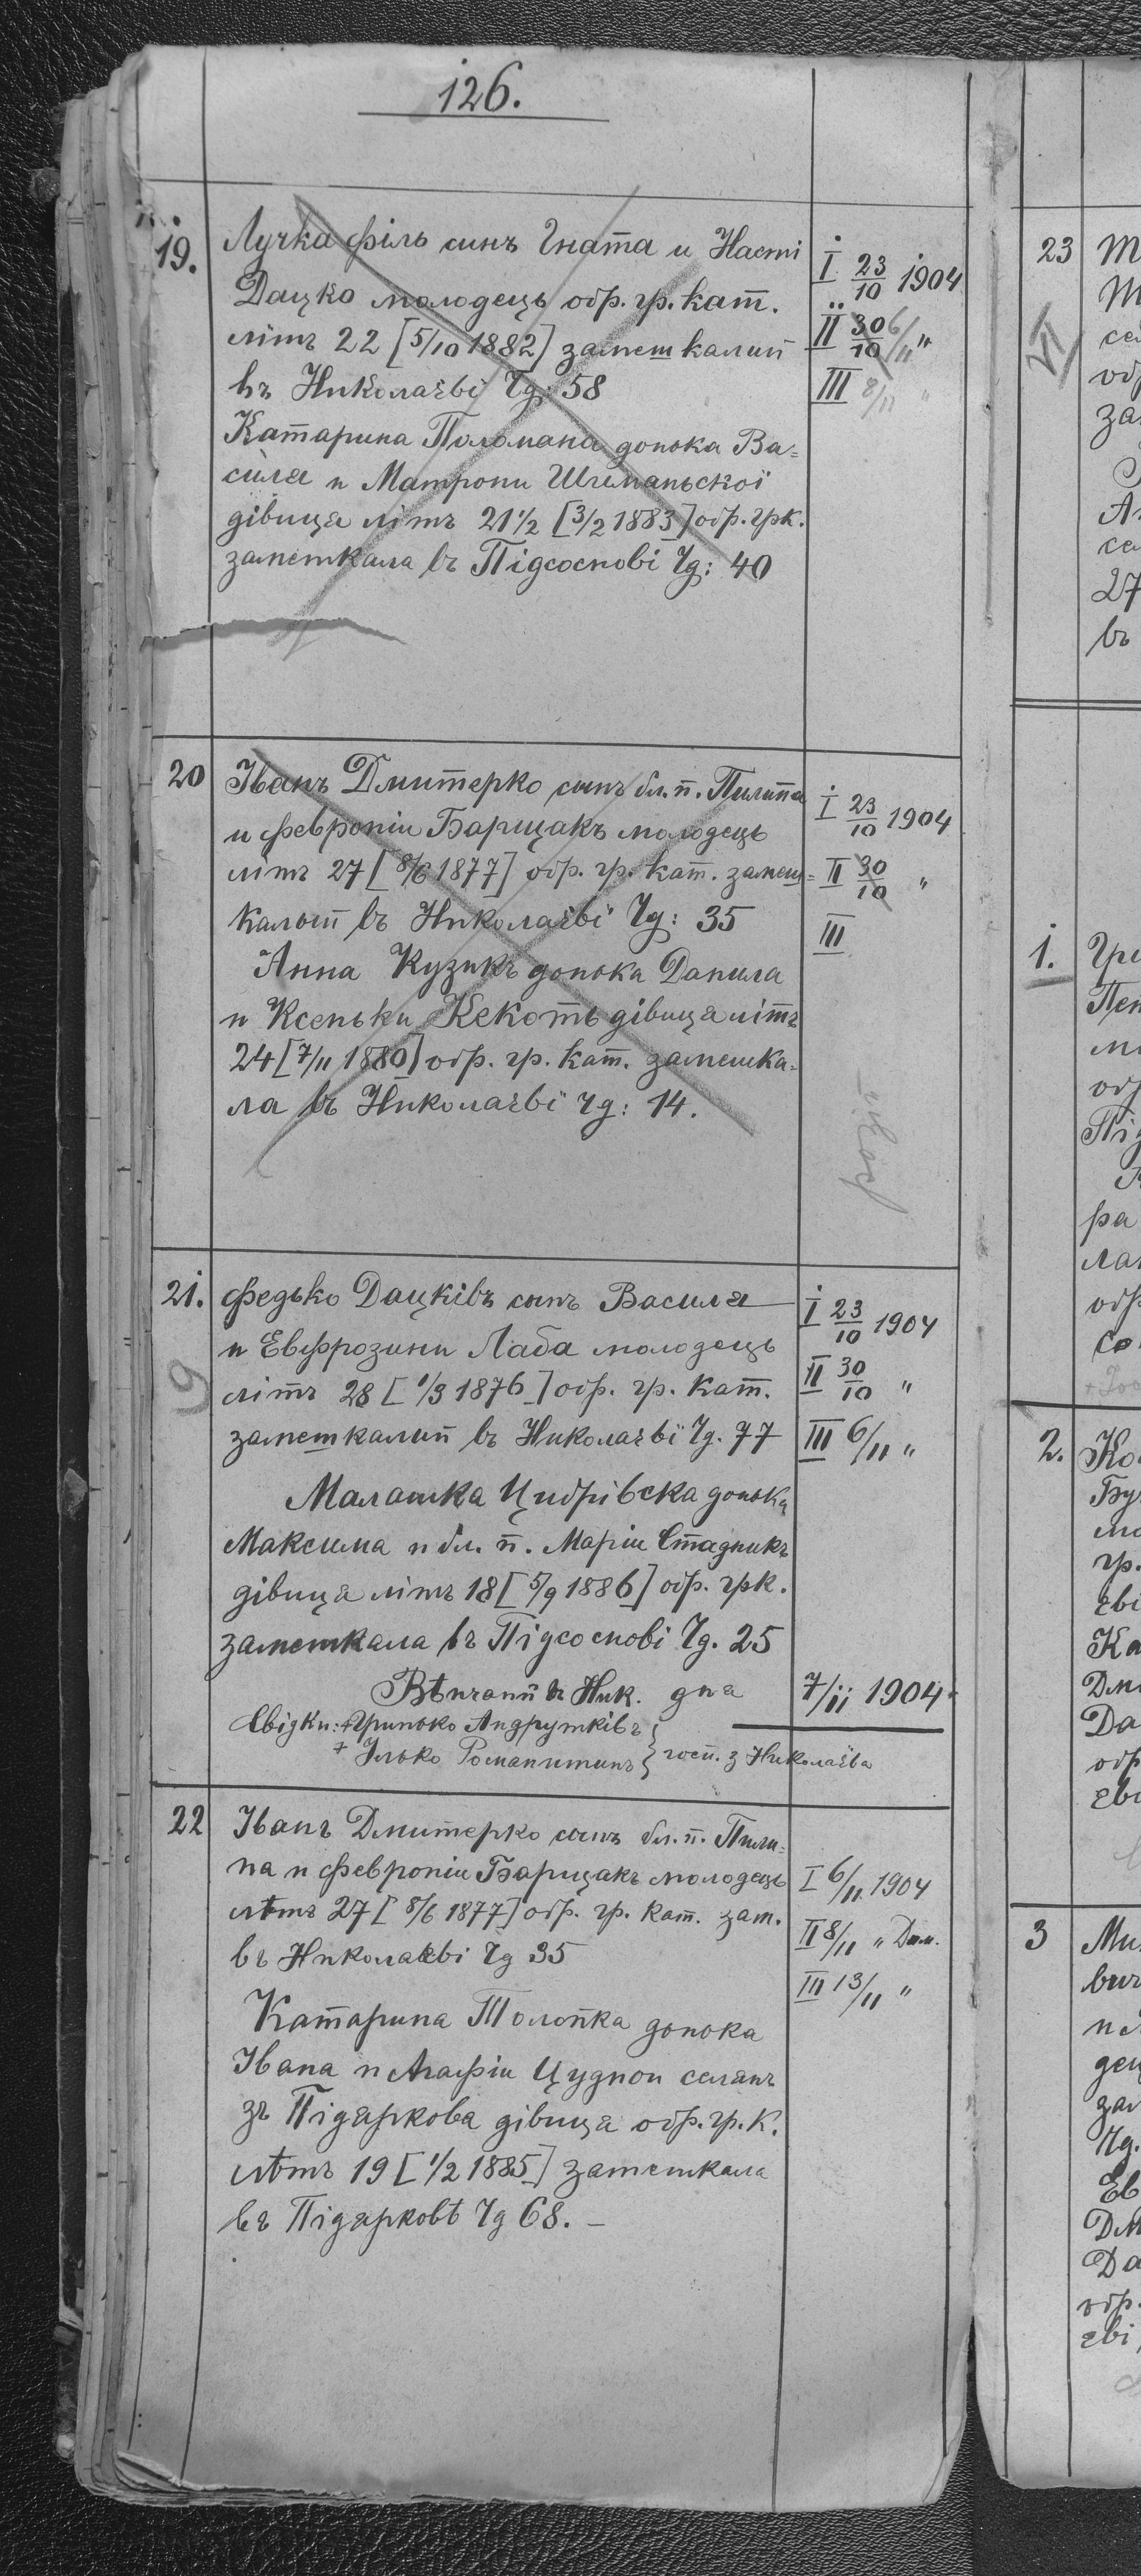 126.
19.
Лучка Філь синъ Гната и Насті
Дацко молодець обр. гр. кат.
літъ 22 [5/10 1882] замешкалий
въ Николаєві Чд: 58
Катарина Поломана донька Ва=
силя и Матрони Шиманьскої
дівиця літъ 21½ [3/2 1883] обр. грк.
замешкала въ Підсоснові Чд: 40
I 23/10 1904
II 30/10 6/11 "
III 8/11 "
20
Іванъ Дмитерко сынъ бл. п. Пилипа
и Февронiи Барицакъ молодець
літъ 27 [8/6 1877] обр. гр. кат. замеш=
калый въ Николаєві Чд: 35
Анна Кузикъ донька Данила
и Ксеньки Кекоть дівиця літъ
24 [7/11 1880] обр. гр. кат. замешка=
ла въ Николаєві Чд: 14.
I 23/10 1904
II 30/10 "
III
21.
Федько Дацківъ сынъ Василя
и Евфрозини Лаба молодець
літъ 28 [1/3 1876] обр. гр. кат.
замешкалий въ Николаєві Чд. 77
Малашка Цидрівска донька
Максима и бл. п. Маріи Стадникъ
дівиця літъ 18 [5/9 1886] обр. грк.
замешкала въ Підсоснові Чд. 25
Вѣнчаніи въ Ник. дня 7/11 1904.
Свідки: + Гринько Андрушківъ
+ Ілько Романишинъ } госп. з Николаєва
I 23/10 1904
II 30/10 "
III 6/11 "
22
Іванъ Дмитерко сынъ бл. п. Пили=
па и Февроніи Барицакъ молодець
лѣтъ 27 [8/6 1877] обр. гр. кат. зам.
въ Николаєві Чд 35
Катарина Толопка донька
Івана и Агафіи Цудной селянъ
зъ Підяркова дівиця обр. гр. к.
лѣтъ 19 [1/2 1885] замешкала
въ Підярковѣ Чд 68. –
I 6/11 1904
II 8/11 " Дим.
III 13/11 "
23
1.
2.
3